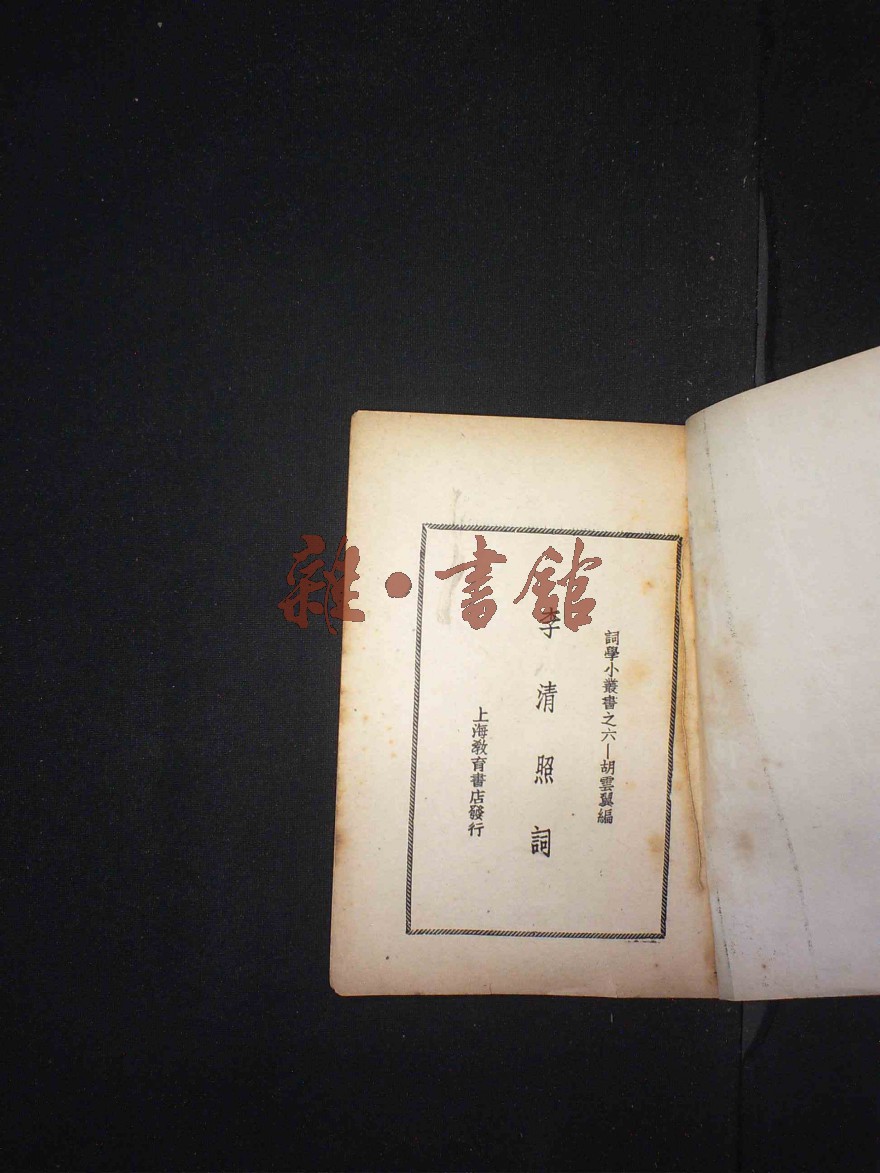 詞學小叢書之六—胡雲翼編
李清照詞
上海教育書店發行
雜·書館